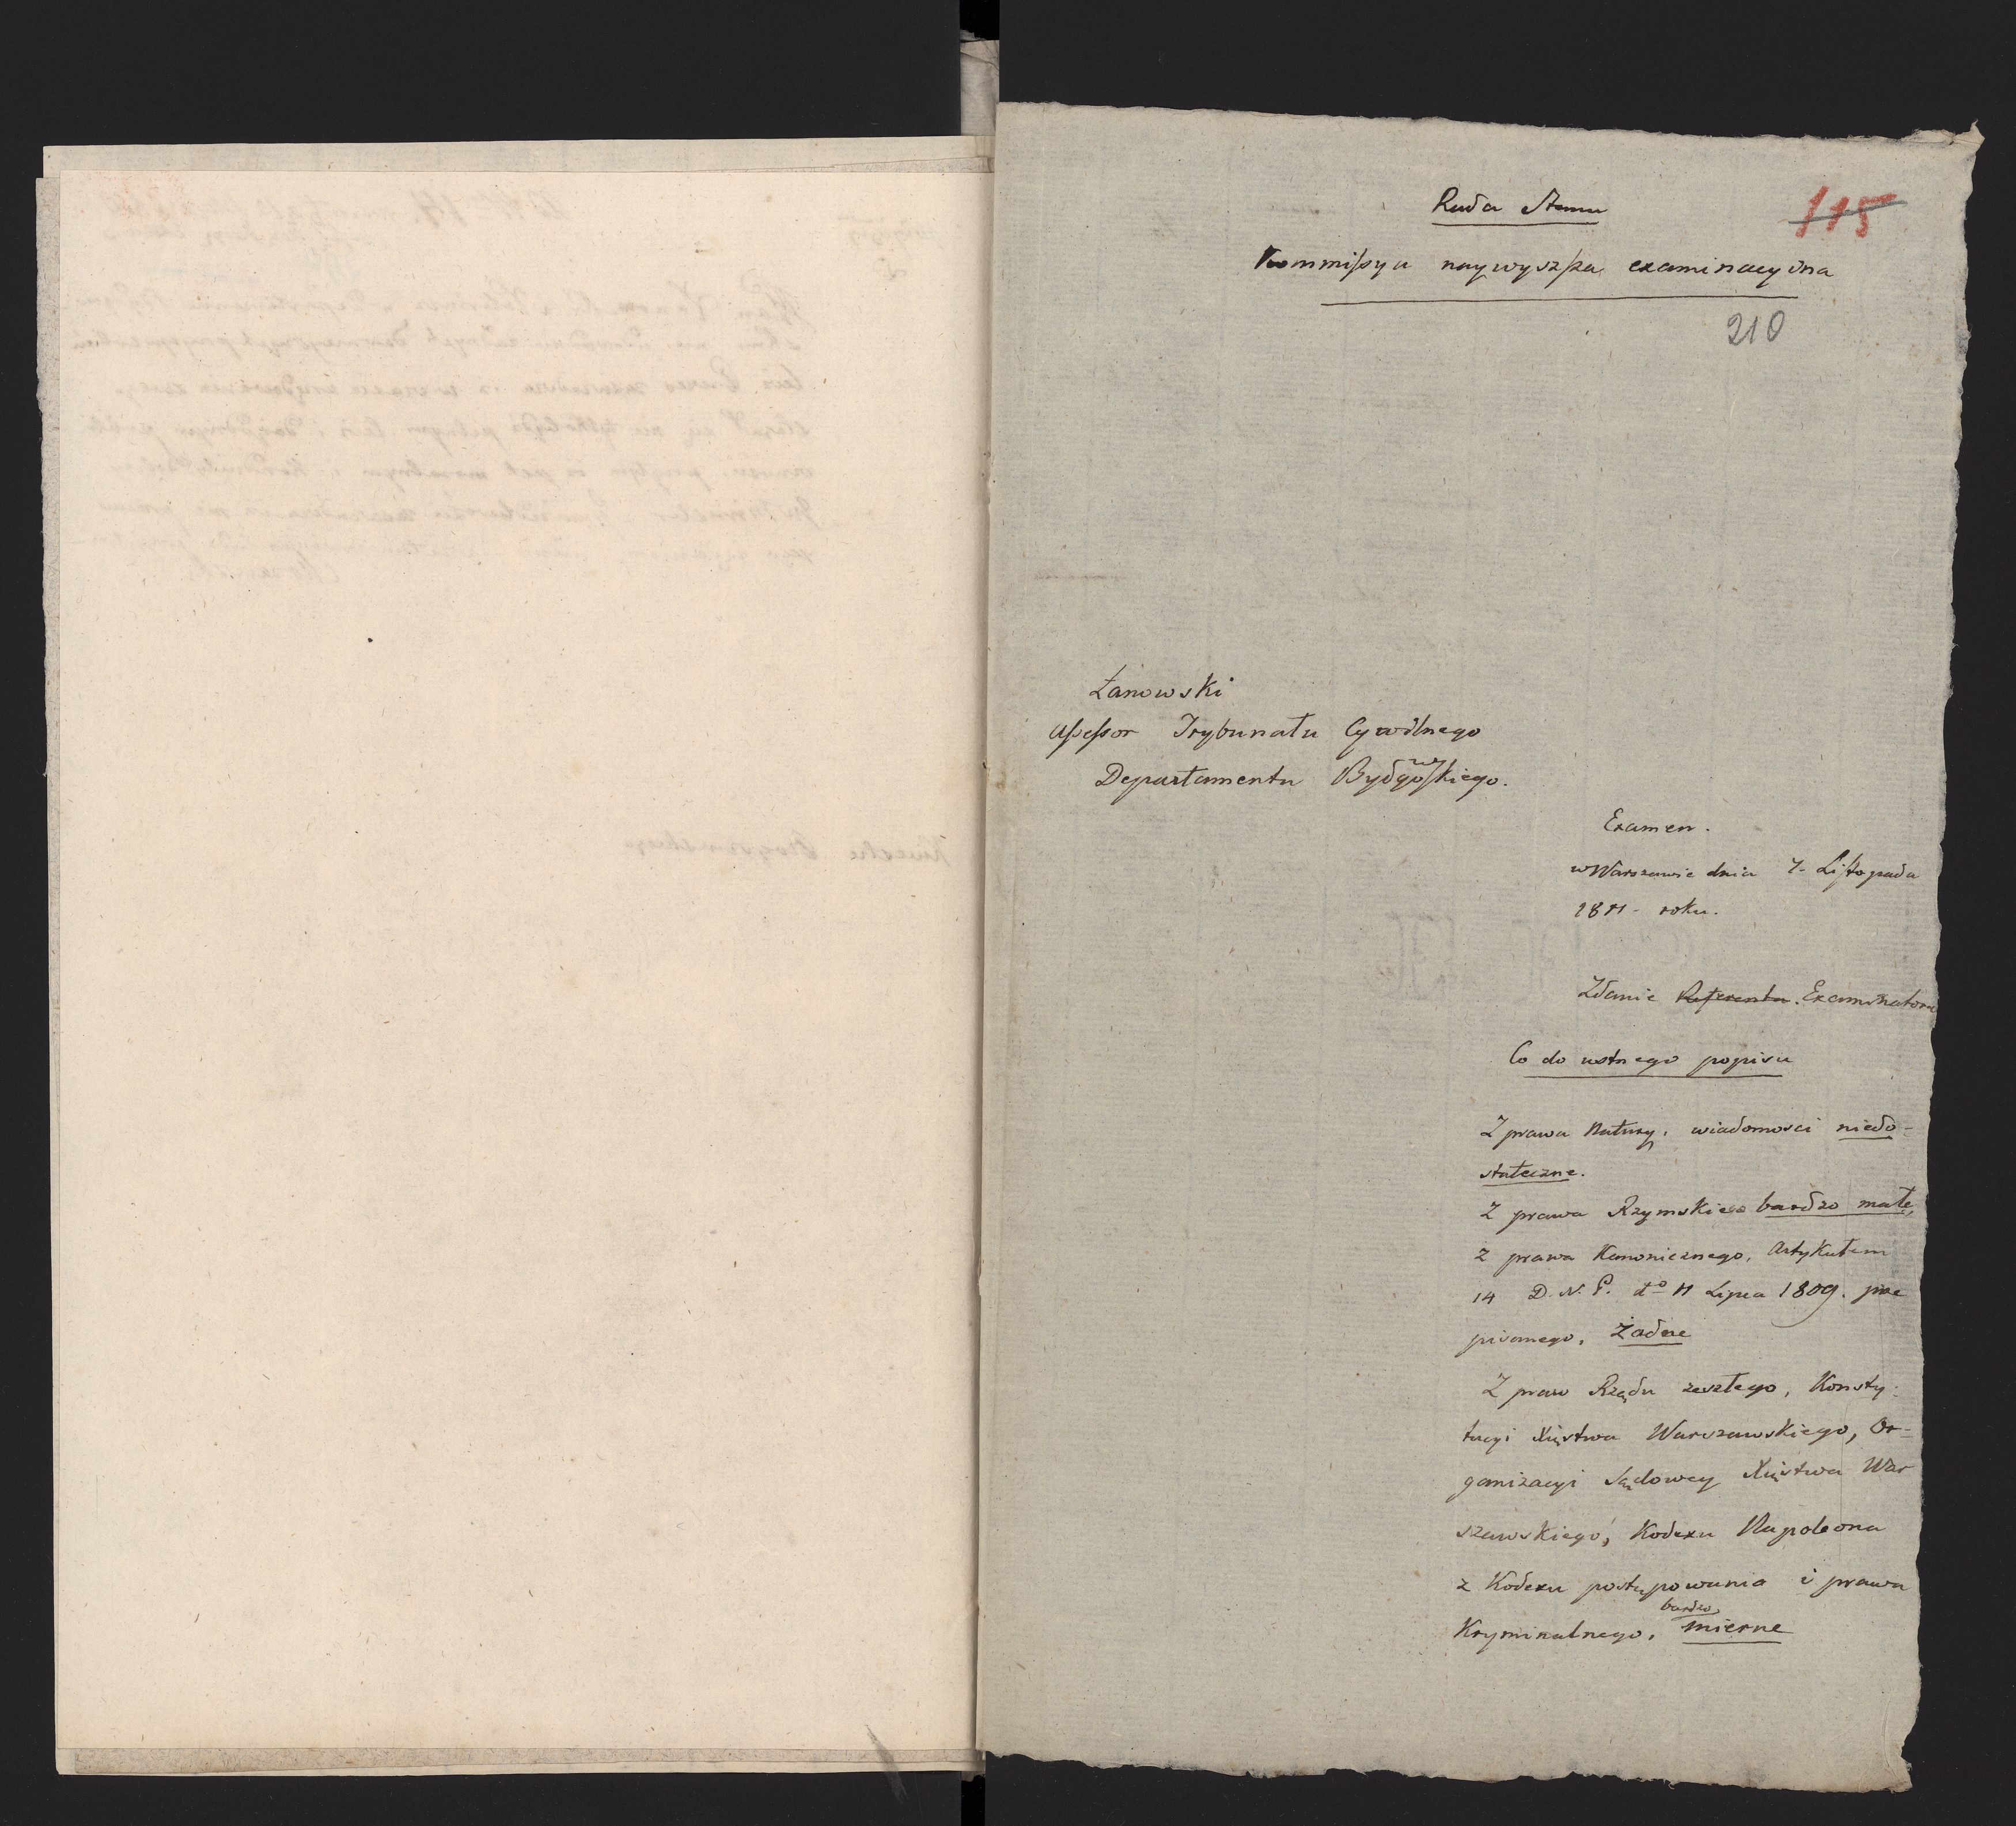 Rada Stanu
115
Kommissya naywyzsza examinacyina
210
Łanowski
Assessor Trybunału Cywilnego
Departamentu Bydgowskiego.
Examen.
w Warszawie dnia 7. Listopada
1811 - roku.
Zdanie Referenta. Examinatora
Co do ustnego popisu
Z prawa Natury, wiadomosci niedo-
stateczne.
Z prawa Rzymskiego bardzo małe,
z prawa Kanonicznego, Artykułem
14 D. N. P. do 11 Lipca 1809. prze
pisanego, żadne
Z praw Rządu zeszłego, Konsty-
tucyi Xięstwa Warszawskiego, Or-
ganizacyi Sądowey Xięstwa War
szawskiego, Kodexu Napoleona
z Kodexu postępowania i prawa
Kryminalnego, bardzo mierne